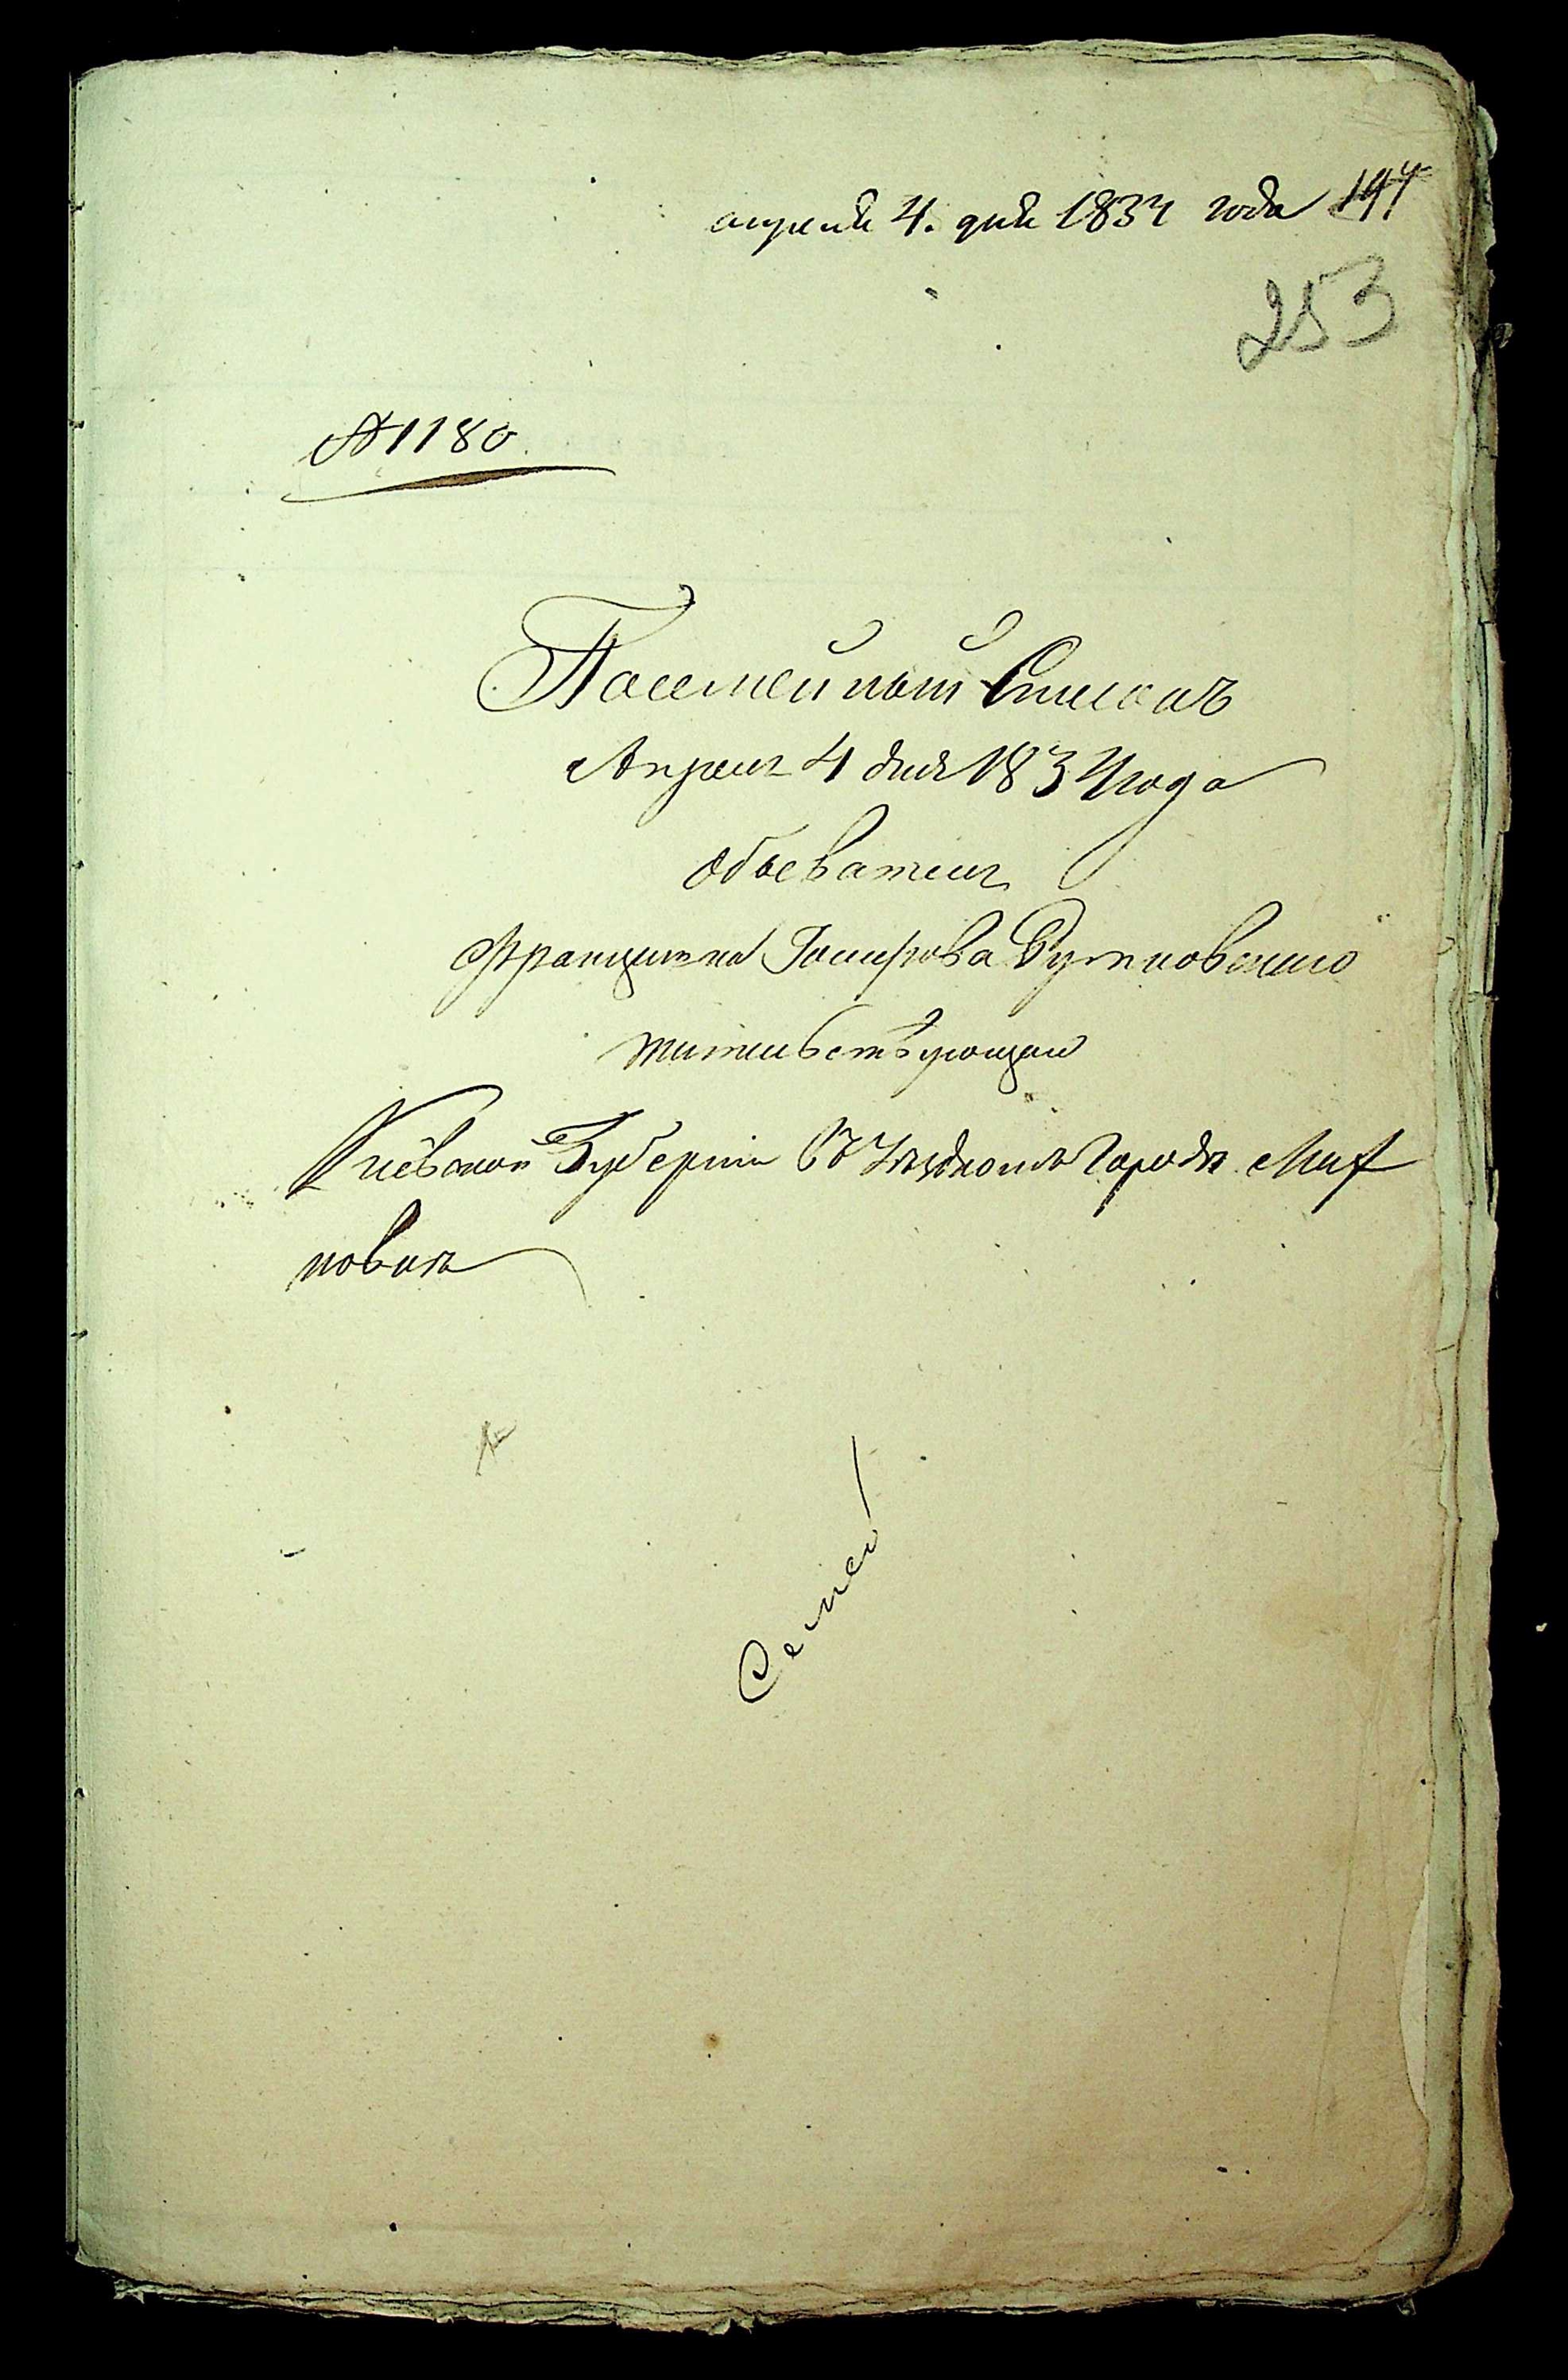 апреля 4. дня 1834 года 194
253
№ 1180
Посемейный Список
Апреля 4 дня 1834 года
Обывателя
Францишка Рутковского
жительствующаго
Киевской Губернии въ Уездномъ Городе Лип
повце